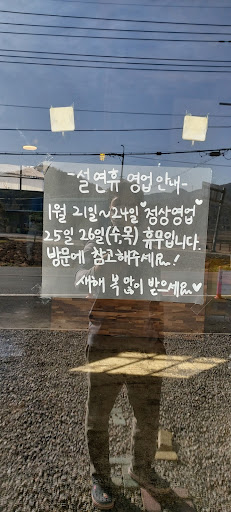 -설 연휴 영업 안내-
1월 21일~24일 ♥정상영업♥
25일 26일(수,목) 휴무입니다.
방문에 참고해주세요~!
새해 복 많이 받으세요~♥